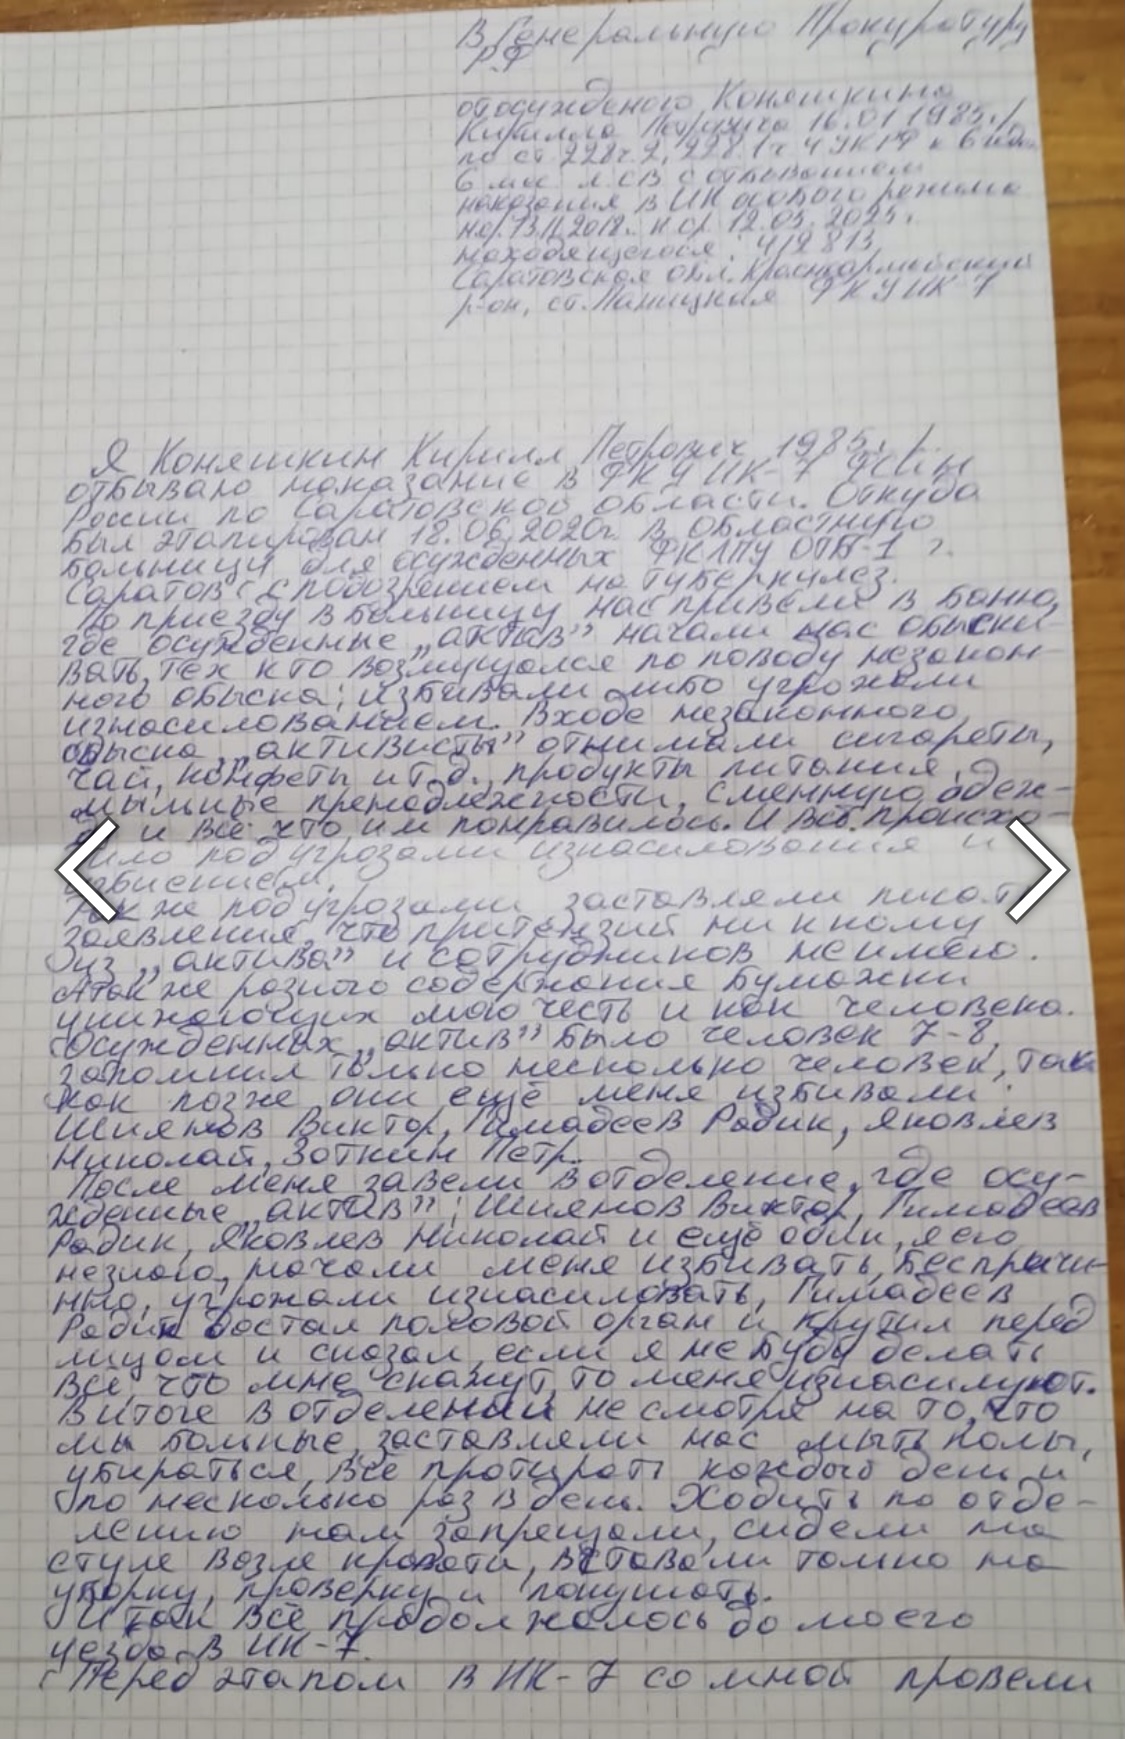 В Генеральную Прокуратуру
РФ
от осужденого Коняшкина
Кирилла Петровича 16.01.1985г/р
по ст 228 ч. 2, 228.1 ч 4 УК РФ к 6
6 мес. л.св с отбыванием
наказания в ИК особого режима
н.с/ 13.11.2018. к.с/ 12.05.2025г.
находящегося: 412813,
Саратовская обл. Красноармейский
р-он, ст. Паницкая ФКУ ИК-7
Я Коняшкин Кирилл Петрович 1985г./р.
отбываю наказание в ФКУ ИК-7
России по Саратовской области. Откуда
был этапирован 18.06.2020г. в областную
больницу для осужденных ФКЛПУ ОТБ-1 г.
Саратов с подозрением на туберкулез.
По приезду в больницу нас привели в баню,
где осужденные „актив” начали нас обыски-
вать, тех кто возмущался по поводу незакон-
ного обыска; избивали либо угрожали
изнасилованием. Входе незаконного
обыска „активисты” отнимали сигареты,
чай, конфеты и т.д., продукты питания,
мыльные принадлежности, сменную одеж-
ду и всё что им понравилось. И всё происхо-
дило под угрозами изнасилования и
избиением.
Так же под угрозами заставляли писать
заявления, что притензий ни к кому
из „актива” и сотрудников не имею.
А так же разного содержания бумажки
унижающих мою честь и как человека.
Осужденных „актив” было человек 7-8,
запомнил только несколько человек, так
как позже они ещё меня избивали:
Шиянов Виктор, Гимадеев Радик, Яковлев
Николай, Зоткин Петр.
После меня завели в отделение, где осу-
жденные „актив”; Шиянов Виктор, Гимадеев
Радик, Яковлев Николай и ещё один, я его
незнаю, начали меня избивать, беспричи-
нно, угрожали изнасиловать, Гимадеев
Радик достал половой орган и крутил перед
лицом и сказал, если я не буду делать
всё, что мне скажут, то меня изнасилуют.
В итоге в отделении не смотря на то, что
мы больные, заставляли нас мыть полы,
убираться, всё протирать каждый день и
по несколько раз в день. Ходить по отде-
лению нам запрещали, сидели на
стуле возле кровати, вставали только на
уборку, проверку и покушать.
И так всё продолжалось до моего
уезда в ИК-7.
Перед этапом в ИК-7 со мной провели